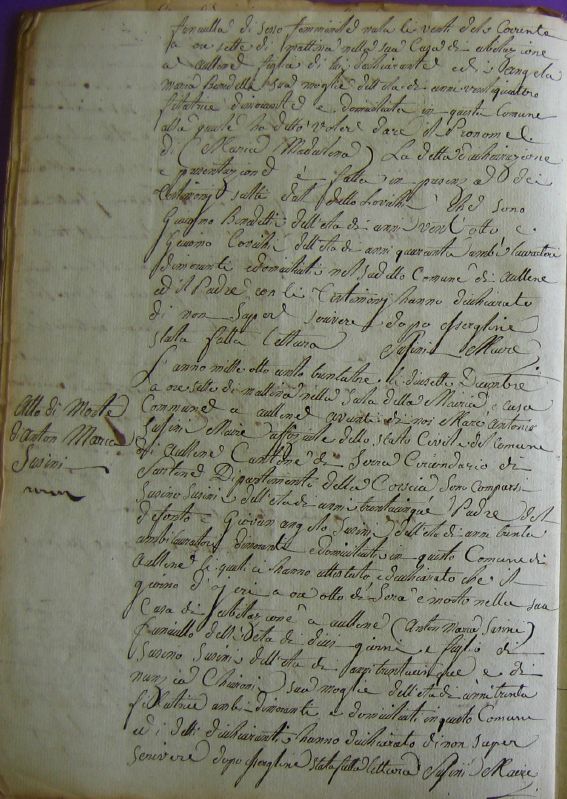 fanciulla di sesso femminile nata li venti del Corrente
a ore sette di mattina nella sua Casa di abitazione
a Aullene figlia di lui dichiarante e di Angela
Maria Benedetti sua moglie dell'età di anni venti quatro
filatrice dimorante e domiciliata in questa Comune
alla quale ha detto voler dare il Pronome
di (Maria Madalena) La detta dichiarazione
e presentazione è fatta in presenza dei
Testimonj che sono
Giacomo Benedetti dell'età di anni vent'otto e
dell'età di anni quaranta ambi lavoratori
dimoranti e domiciliati nel sudetto Comune di Aullene
ed il Padre con li Testimonj hanno dichiarato
di non saper scrivere dopo essergline
stata fatta lettura Susini Maire
L'anno mille otto cento trentatre li diecisette Dicembre
a ore sette di mattina nella Sala della Maria, e casa
Atto di Morte
d'Anton Maria
Susini
Comune a Aullene avanti di noi Marc'Antonio
Susini Maire Uffiziale dello Stato Civile del Comune
di Aullene Cantone di Serra Circondario di
Sartene Dipartimento della Corsica Sono Comparsi
Susino Susini dell'età di anni trentacinque Padre del
defonto e Giovan Angelo Susini dell'età di anni trenta
ambi lavoratori dimoranti e domiciliati in questo Comune di
Aullene i quali ci hanno attestato e dichiarato che il
giorno d'jeri a ore otto di Sera è morto nella sua
Casa di abitazione a Aullene (Anton Maria Susini)
fanciullo dell'Età di dieci giorni e figlio di
Susino Susini dell'età di anni trentacinque e di
Nunzia sua moglie dell'età di anni trenta
filatrice ambi dimoranti e domiciliati in questo Comune
ed i detti dichiaranti hanno dichiarato di non saper
scrivere dopo essergline stata fatta lettura Susini Maire